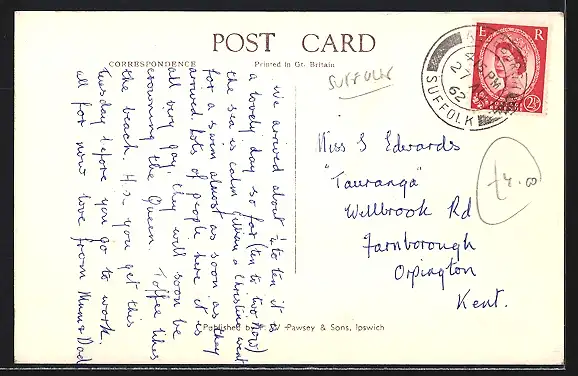 POST CARD
CORRESPONDENCE
Printed in Gt. Britain
SUFFOLK
we arrived about ¼ to ten it is
a lovely day so far (ten to two now)
the sea is calm Gillian & Christine went
for a swim almost as soon as they
arrived. Lots of people here it is
all very gay, they will soon be
crowning the Queen. Toffee likes
the beach. you get this
Tuesday before you go to work.
all for now love from Mum & Dad
Miss S Edwards
"Tauranga"
Wellbrook Rd
Farnborough
Orpington
Kent.
£4.00
E R
PM
27
62
SUFFOLK
2½D
Published by Pawsey & Sons, Ipswich